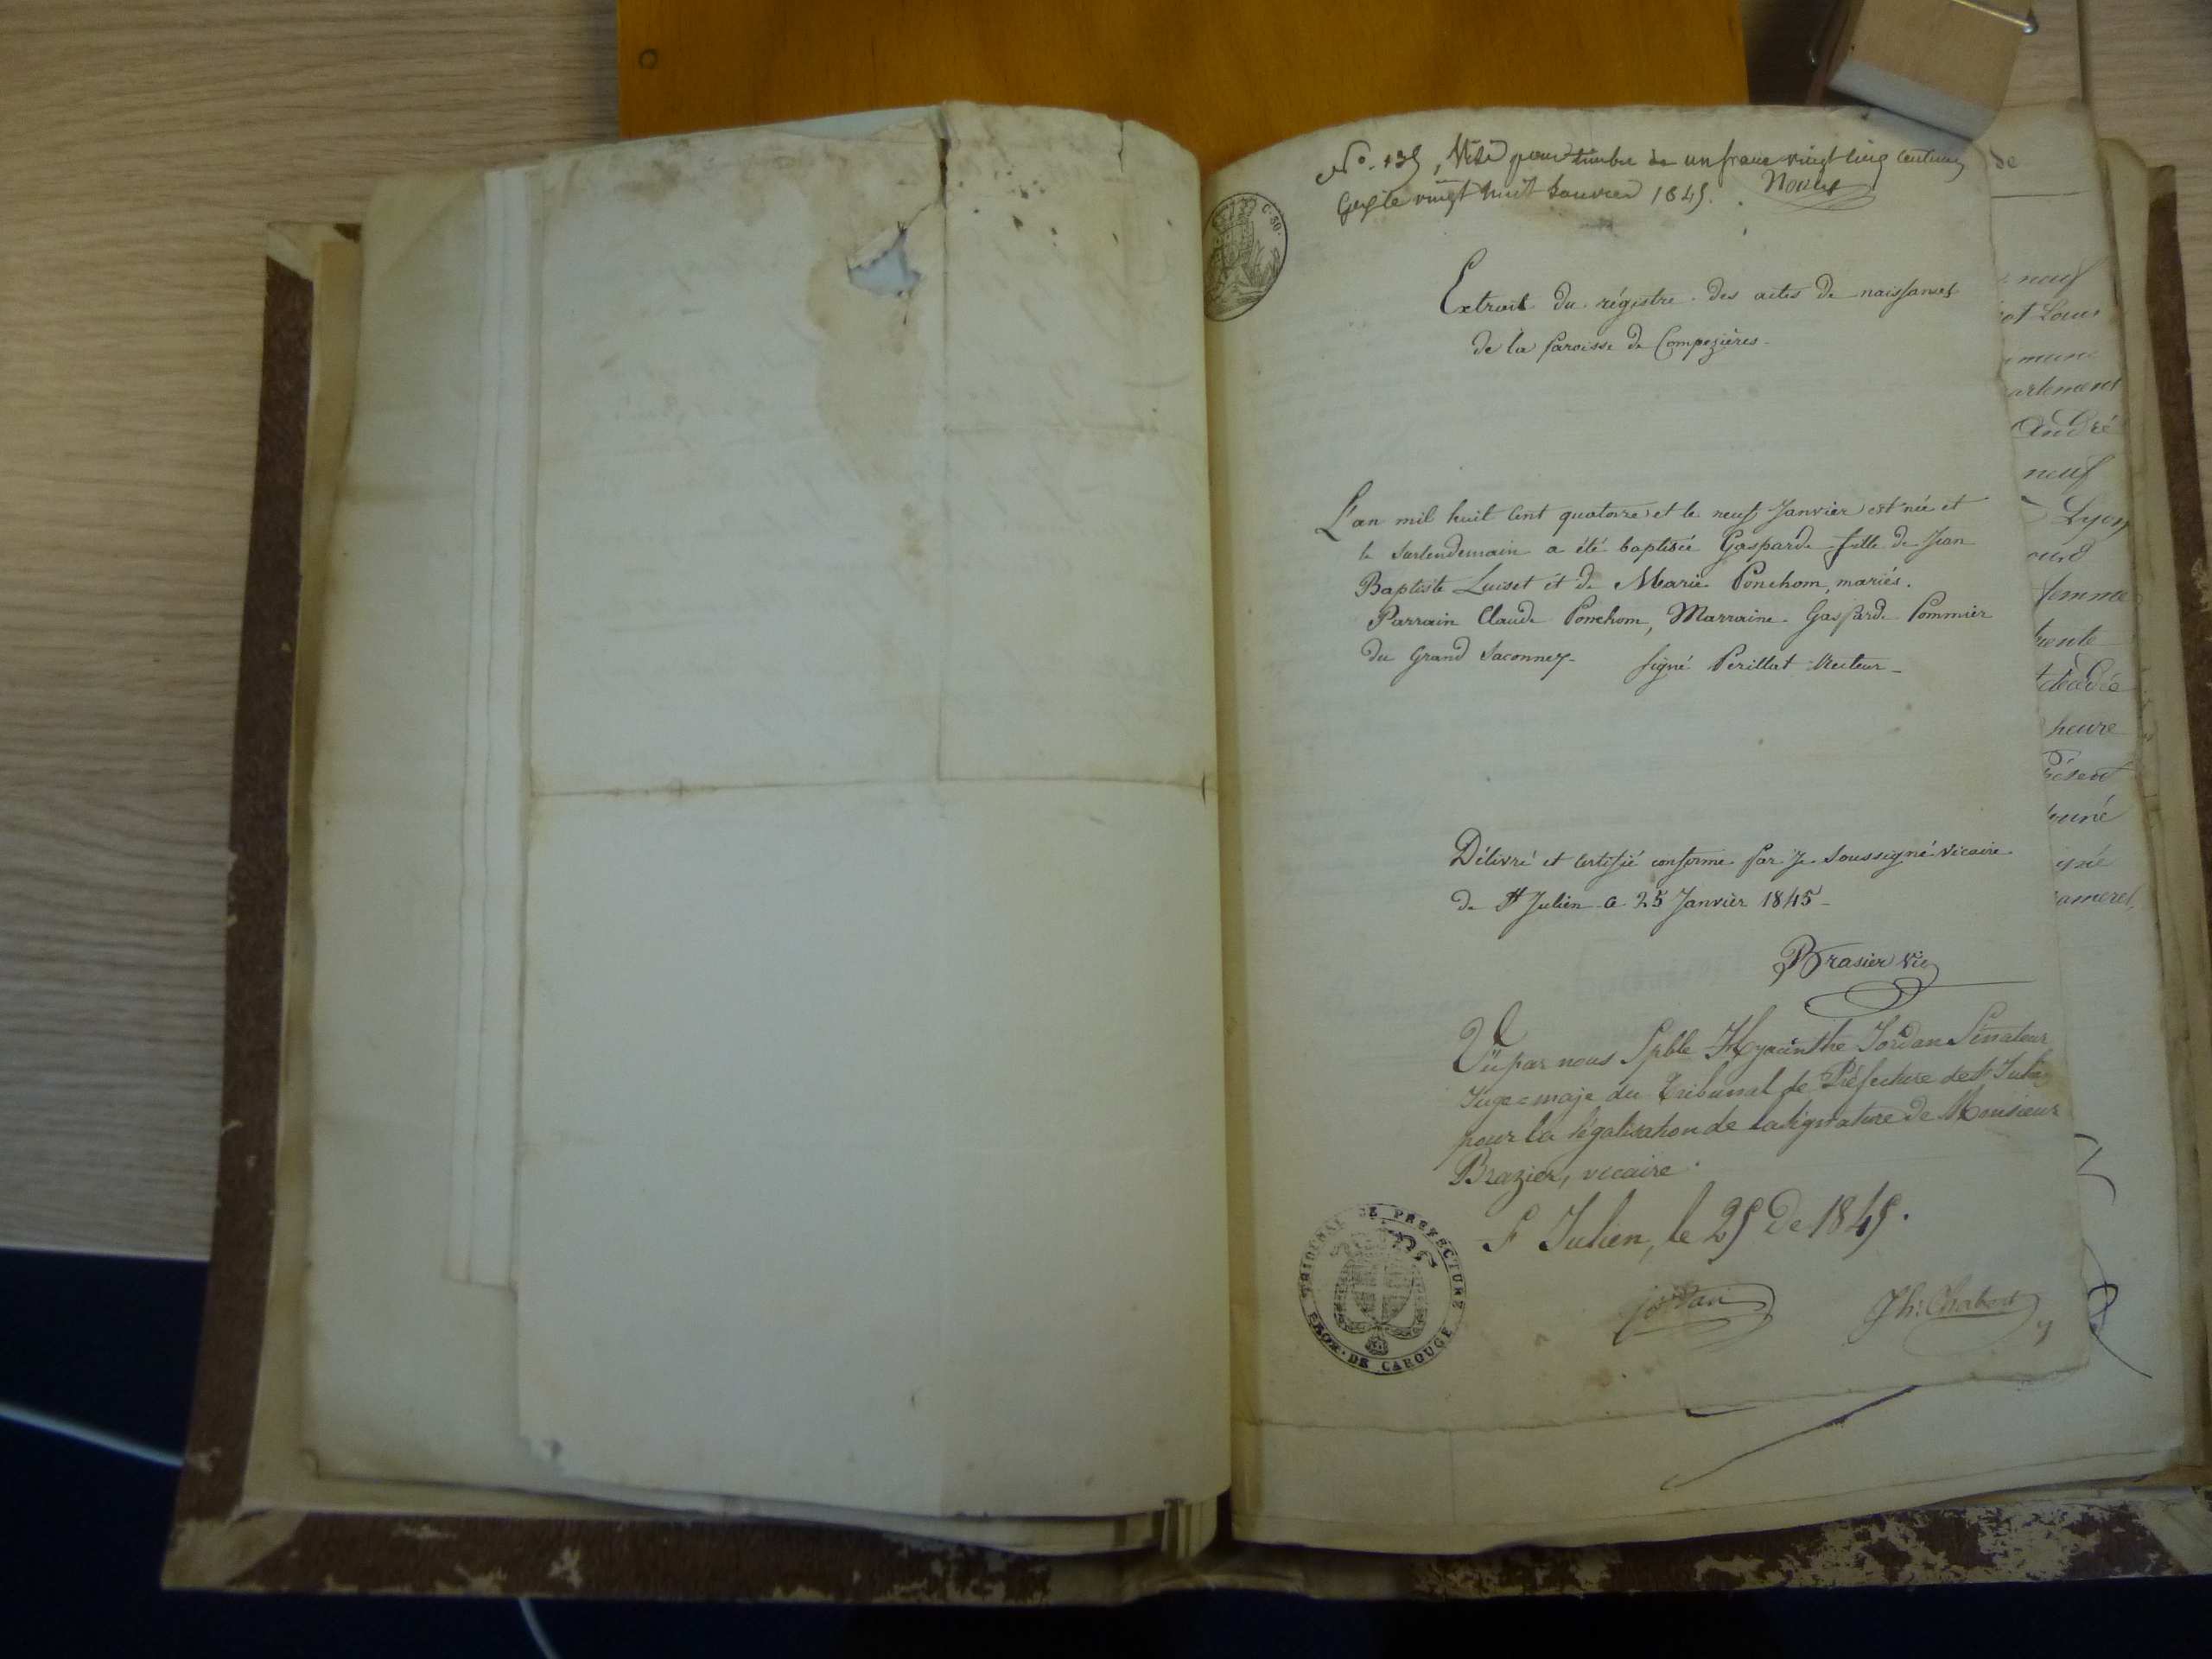 Visé pour timbre de un franc vingt cinq centimes
Gex le vingt huit Janvier 1845.
C. 80.
Extrait du régistre des actes de naissances
de la Paroisse de Compezières.
L'an mil huit cent quatorze et le neuf Janvier est née et
le surlendemain a été baptisée Gasparde fille de Jean
Baptiste Luiset et de Marie Ponchom, mariés.
Parrain Claude Ponchom, Marraine Gasparde Pommier
du Grand Saconnex. Signé Perillat Recteur
Délivré et certifié conforme par Je soussigné vicaire
de St Julien ce 25 Janvier 1845
Brasier Vic
Vu par nous Spble Hyacinthe Jordan Sénateur
Juge=maje du Tribunal de Préfecture de St Julien
pour la légalisation de la signature de Monsieur
Brazier, vicaire.
St Julien, le 25 de 1845.
TRIBUNAL DE PREFECTURE
PROV. DE CAROUGE
Jordan
Jh: Chabert
de
neuf
ot Louis
mune
artement
André
neuf
Lyon
femme
trente
décédée
heure
résent